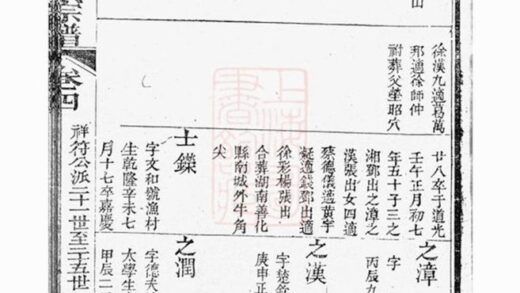 山
徐漢九適葛萬
邢適徐師仲
祔葬父塋昭穴
廿八卒于道光
壬午正月初七
年五十子三之
湘鄧出之漳之
漢張出女四適
蔡德儀適黃宇
凝適錢鄧出適
徐彩楊張出
合葬湖南善化
縣南城外牛角
尖
士鏷
字文和號漁村
生乾隆辛未七
月十七卒嘉慶
之漳
字
丙辰九
之漢
字楚
庚申正
之潤
字德夫
太學生
甲辰二
宗譜
卷四
祥符公派二十一世至二十五世